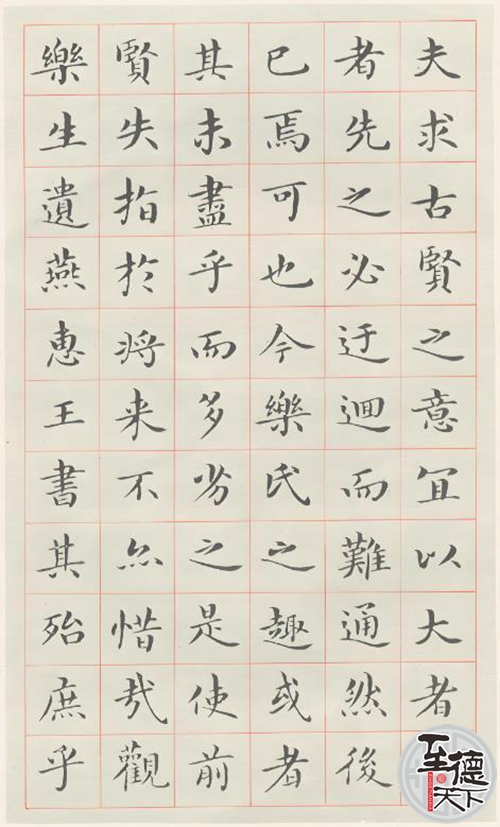 夫求古賢之意冝以大者
者先之必迂迴而難通然後
已焉可也今樂氏之趣或者
其未盡乎而多劣之是使前
賢失指於将来不亦惜哉觀
樂生遺燕惠王書其殆庶乎
至德天下